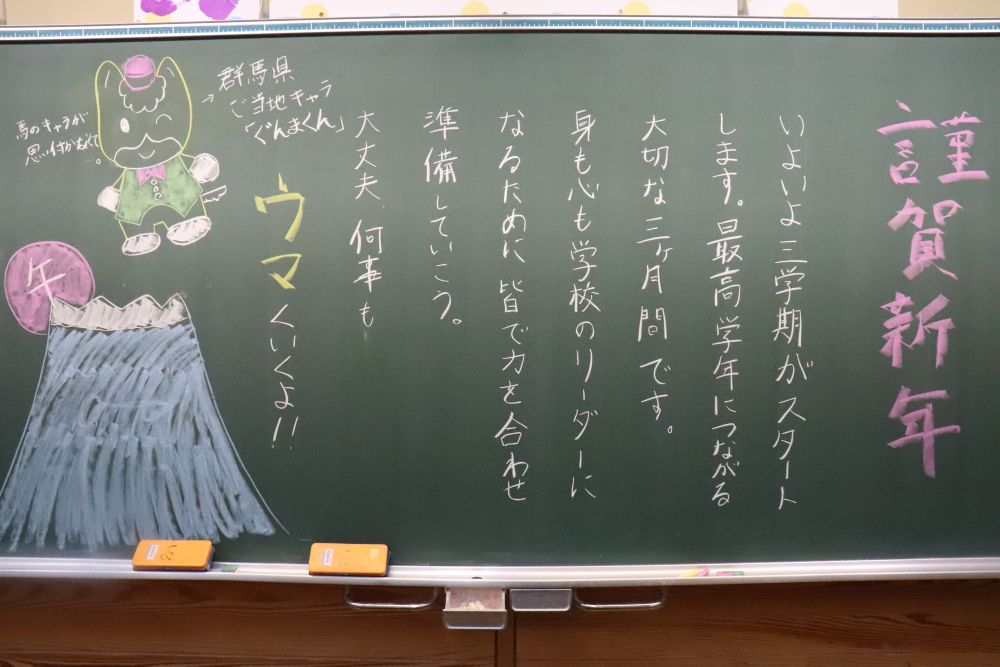 謹賀新年
いよいよ三学期がスタート
します。最高学年につながる
大切な三ヶ月間です。
身も心も学校のリーダーに
なるために皆で力を合わせ
準備していこう。
大丈夫、何事も
ウマくいくよ!!
→群馬県
ご当地キャラ
「ぐんまくん」
馬のキャラが
思い付かなくて
…。
午